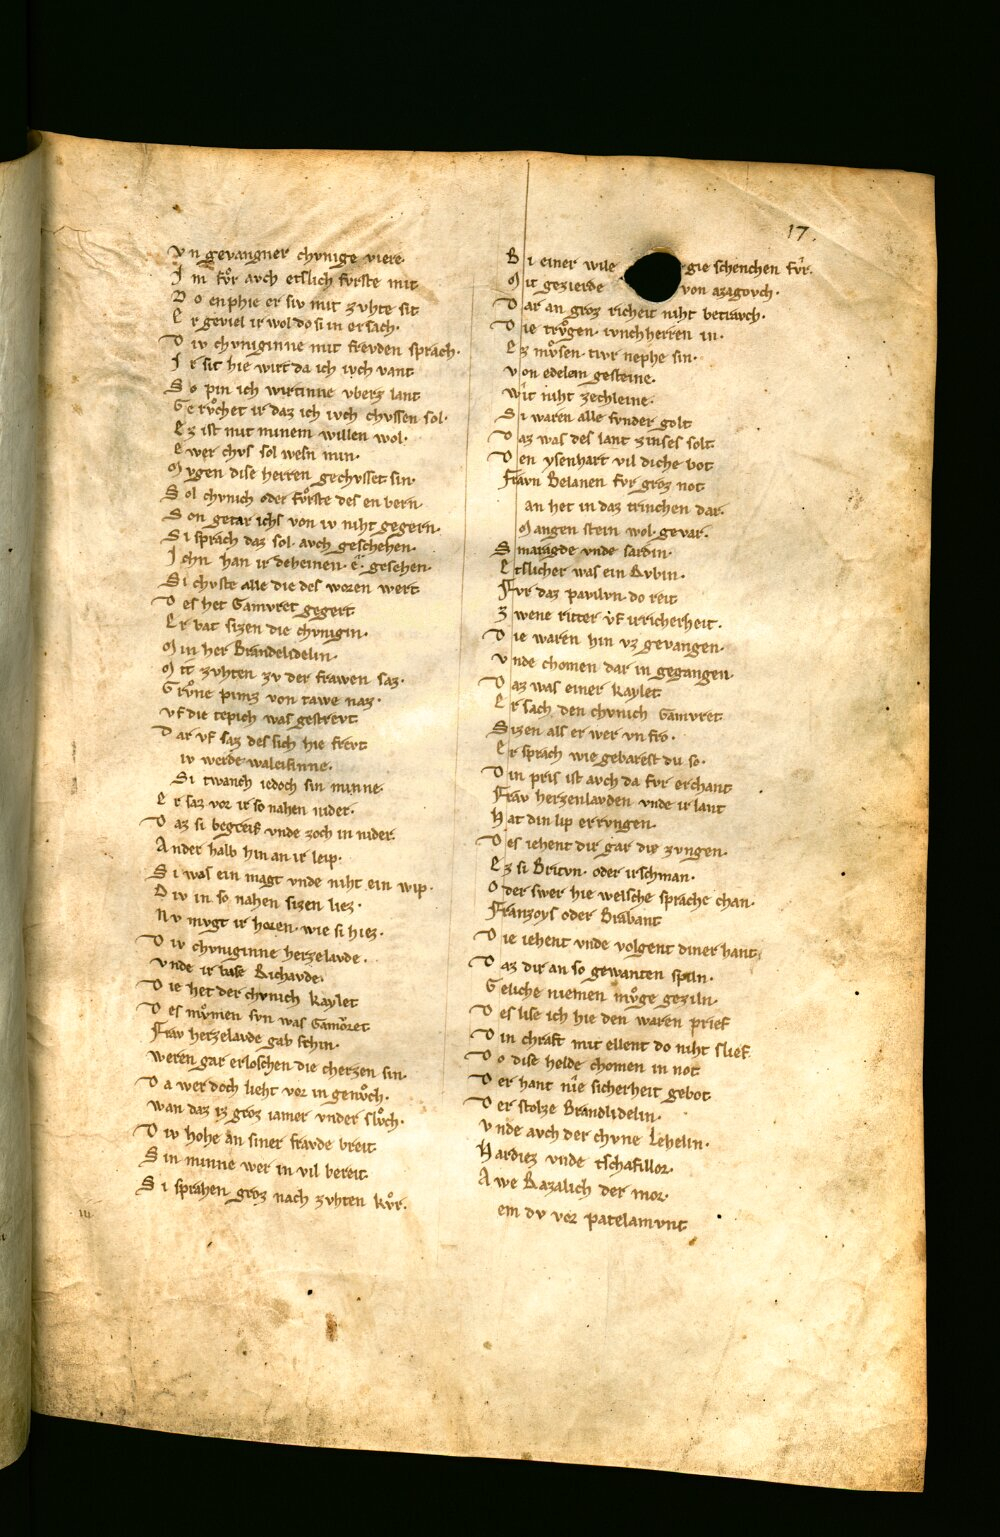 17.
v n gevangner chvnige viere·
I m fůr avch etslich fvrste mit
D o enphie er siv mit zvhte sit
E r geviel ir wol do si in ersach·
D iv chvniginne mit frevden sprach·
I r sit hie wirt da ich ivch vant
S o pin ich wirtinne vberz lant
Gervͦchet ir daz ich ivch chvssen sol·
E z ist mit minem willen wol·
E wer chvs sol wesn min·
M vgen dise herren gechvsset sin·
S ol chvnich oder fvͦrste des en bern
S on getar ichs von iv niht gegern·
S i sprach daz sol avch geschehen·
I chn han ir deheinen · ê · gesehen·
S i chvste alle die des woren wert
D es het Gamvret gegert
E r bat sizen die chvnigin·
M in her Brandelidelin·
M it zvhten zv der frawen saz·
Grvͦne pimz von tawe naz·
vf die tepich was gestrevt
D ar vf saz des sich hie frevt
iv werde waleisinne·
S i twanch iedoch sin minne·
E r saz vor ir so nahen nider·
D az si begreif vnde zoch in nider
A nder halb hin an ir leip·
S i was ein magt vnde niht ein wip·
D iv in so nahen sizen liez·
N v mvgt ir horen wie si hiez·
D iv chvniginne herzelavde·
vnde ir base Richavde·
D ie het der chvnich kaylet
D es mvͦmen svn was Gamvret
Frav herzelavde gab schin·
weren gar erloschen die cherzen sin·
D a wer doch lieht vor in genvͦch·
wan daz iz groz iamer vnder slvͦch·
D iv hohe an siner fravde breit
S in minne wer in vil bereit
S i sprahen groz nach zvhten kvͦr·
B i einer wile gie schenchen fvͤr·
M it gezierde von azagovch·
D ar an groz richeit niht betravch·
D ie trvͦgen ivnchherren in·
E z mvͦsen tivr nephe sin·
v on edelem gesteine·
wit niht zechleine·
S i waren alle svnder golt
D az was des lant zinses solt
D en ysenhart vil diche bot
Fravn Belanen fvr groz not
an het in daz trinchen dar·
Mangen stein wol gevar·
S maragde vnde sardin·
E tslicher was ein Rvbin·
Fvr daz pavilvn do reit
Z wene ritter vf ir richerheit·
D ie waren hin vz gevangen·
v nde chomen dar in gegangen·
D az was einer kaylet
E r sach den chvnich Gamvret
Sizen alls er wer vn fro·
E r sprach wie gebarest du so·
D in pris ist avch da fvr erchant
Frav herzenlavden vnde ir lant
H at din lip errvngen·
D es iehent dir gar die zvngen·
E z si Britvn· oder irschman·
O der swer hie welsche sprache chan·
Franzoys oder Brabant
D ie iehent vnde volgent diner hant
D az dir an so gewanten spiln·
Geliche niemen mvͦge geziln·
D es lise ich hie den waren prief
D in chraft mit ellent do niht slief
D o dise helde chomen in not
D er hant nie sicherheit gebot
D er stolze Brandlidelin·
v nde avch der chvne Lehelin·
H ardiez vnde tschafillor·
A we Razalich der mor·
em dv vor patelamvnt